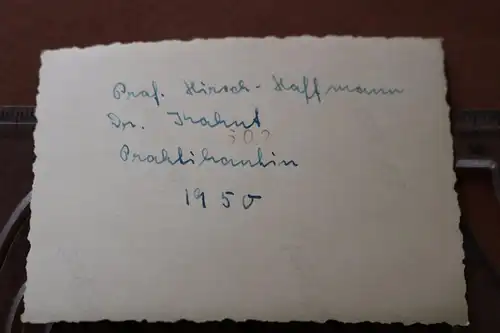 Prof. Hirsch-Hoffmann
Dr. Trahnt
502
Praktikantin
1950